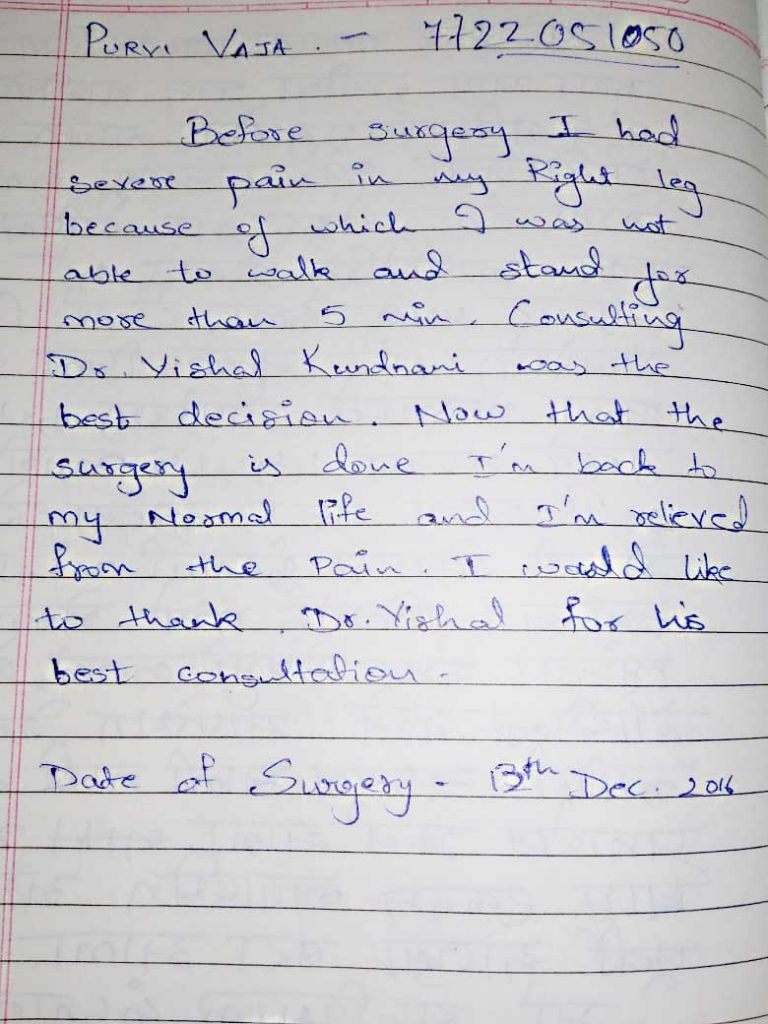 PURVI VAJA. - 7722051050
Before surgery I had
severe pain in my Right leg
because of which I was not
able to walk and stand for
more than 5 min. Consulting
Dr. Vishal Kundnani was the
best decision. Now that the
surgery is done I'm back to
my Normal life and I'm relieved
from the Pain. I would like
to thank Dr. Vishal for his
best consultation.
Date of Surgery - 13th Dec. 2016